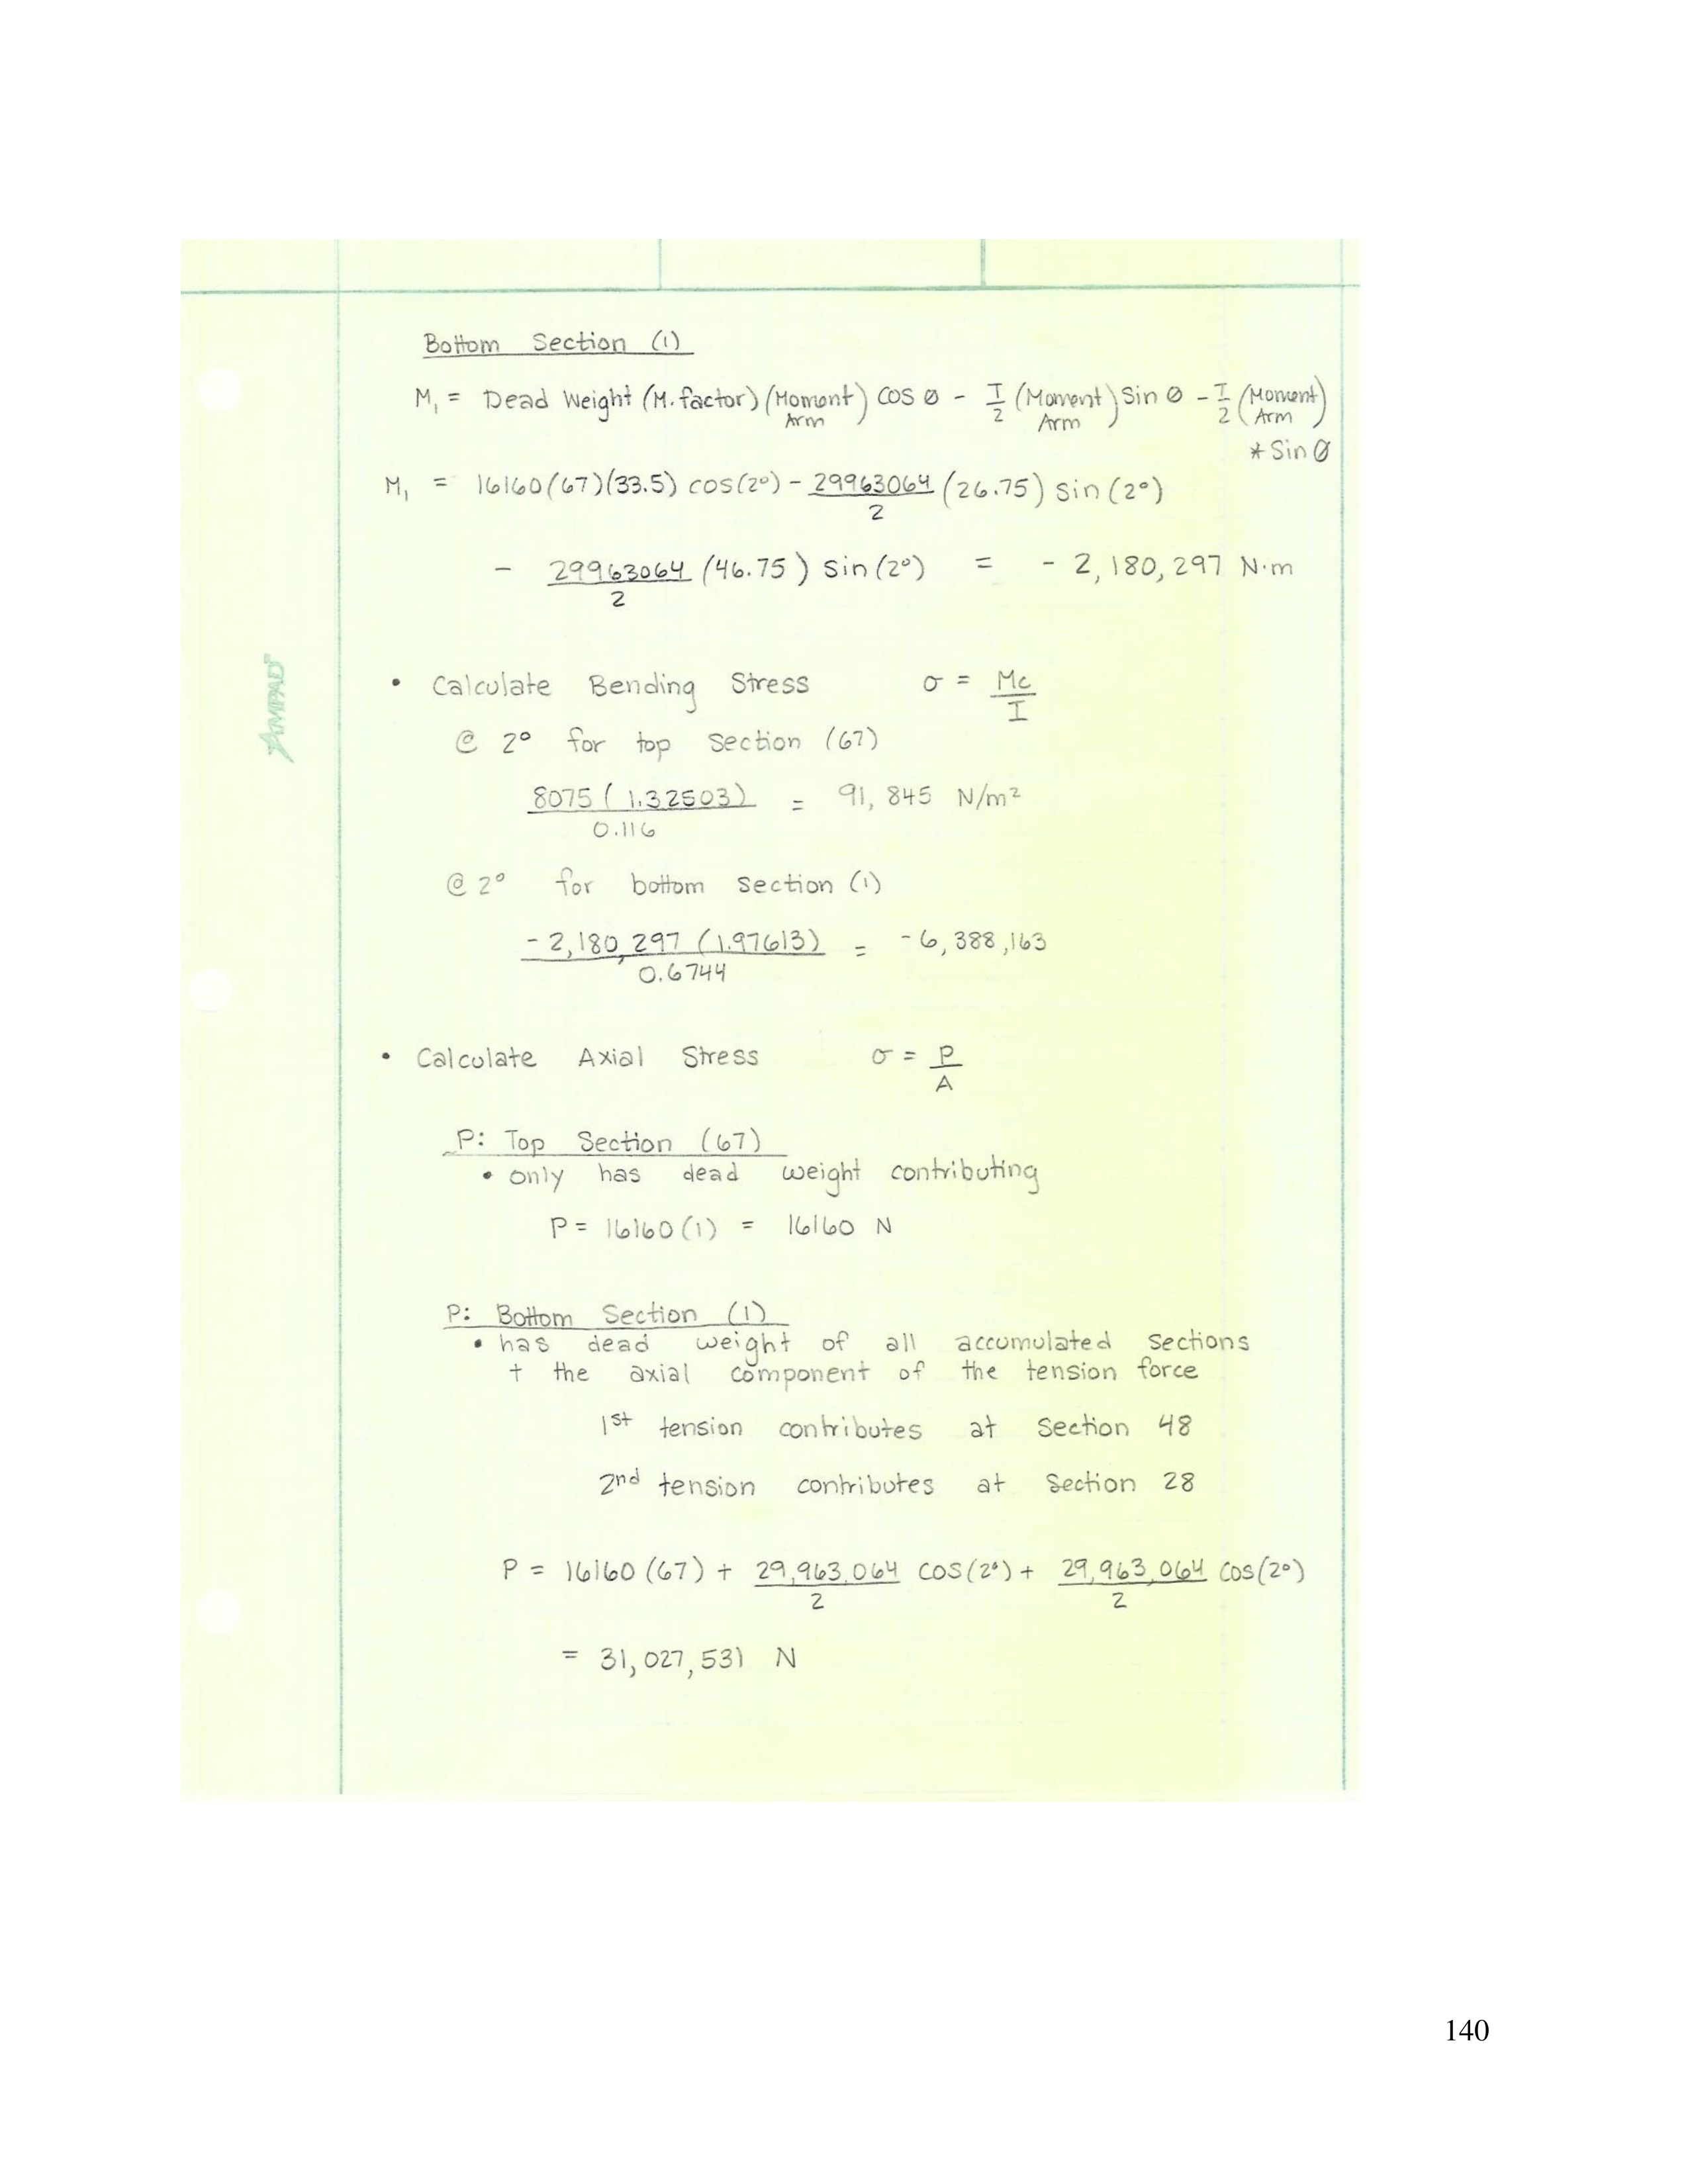 Bottom Section (1)
M₁ = Dead Weight (M. factor) (Moment Arm) cos Ø - T/2 (Moment Arm) Sin Ø - T/2 (Moment Arm)
* Sin Ø
M₁ = 16160(67)(33.5) cos(2°) - 29963064/2 (26.75) sin(2°)
- 29963064/2 (46.75) sin(2°) = - 2,180,297 N·m
AMPAD
• Calculate Bending Stress σ = Mc/I
@ 2° for top section (67)
8075(1.32503)/0.116 = 91,845 N/m²
@ 2° for bottom section (1)
-2,180,297 (1.97613)/0.6744 = -6,388,163
• Calculate Axial Stress σ = P/A
P: Top Section (67)
• only has dead weight contributing
P = 16160(1) = 16160 N
P: Bottom Section (1)
• has dead weight of all accumulated sections
+ the axial component of the tension force
1st tension contributes at section 48
2nd tension contributes at section 28
P = 16160(67) + 29,963,064/2 cos(2°) + 29,963,064/2 cos(2°)
= 31,027,531 N
140